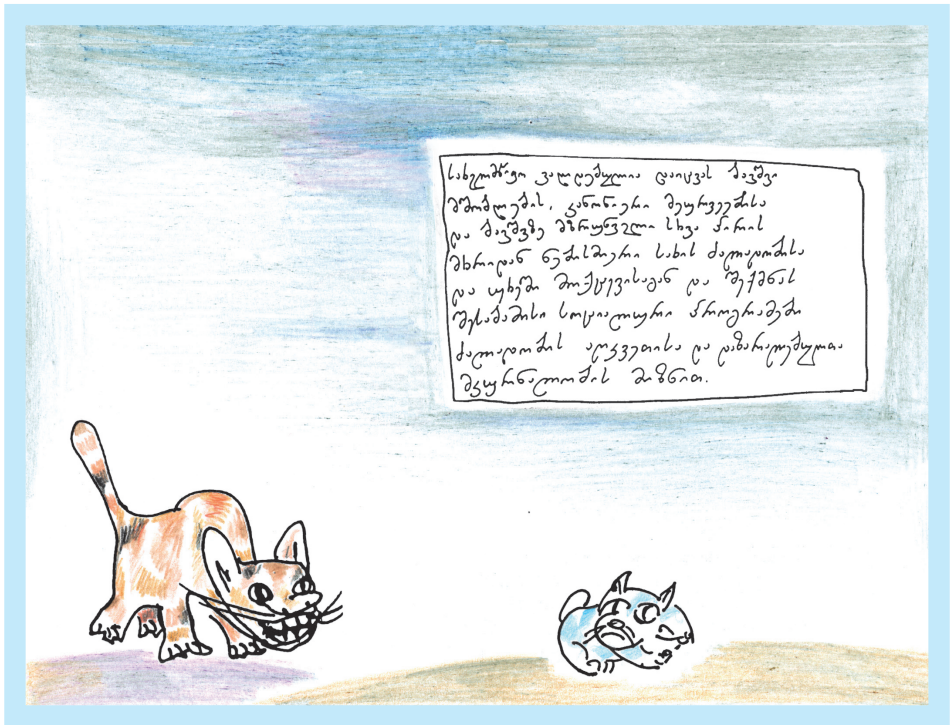 სახელმწიფო ვალდებულია დაიცვას ბავშვი
მშობლების, კანონიერი მეურვეებისა
და ბავშვზე მზრუნველი სხვა პირის
მხრიდან ნებისმიერი სახის ძალადობისა
და ცუდი მოქცევისაგან და შექმნას
შესაბამისი სოციალური პროგრამები
ძალადობის აღკვეთისა და დაზარალებულთა
მკურნალობის მიზნით.